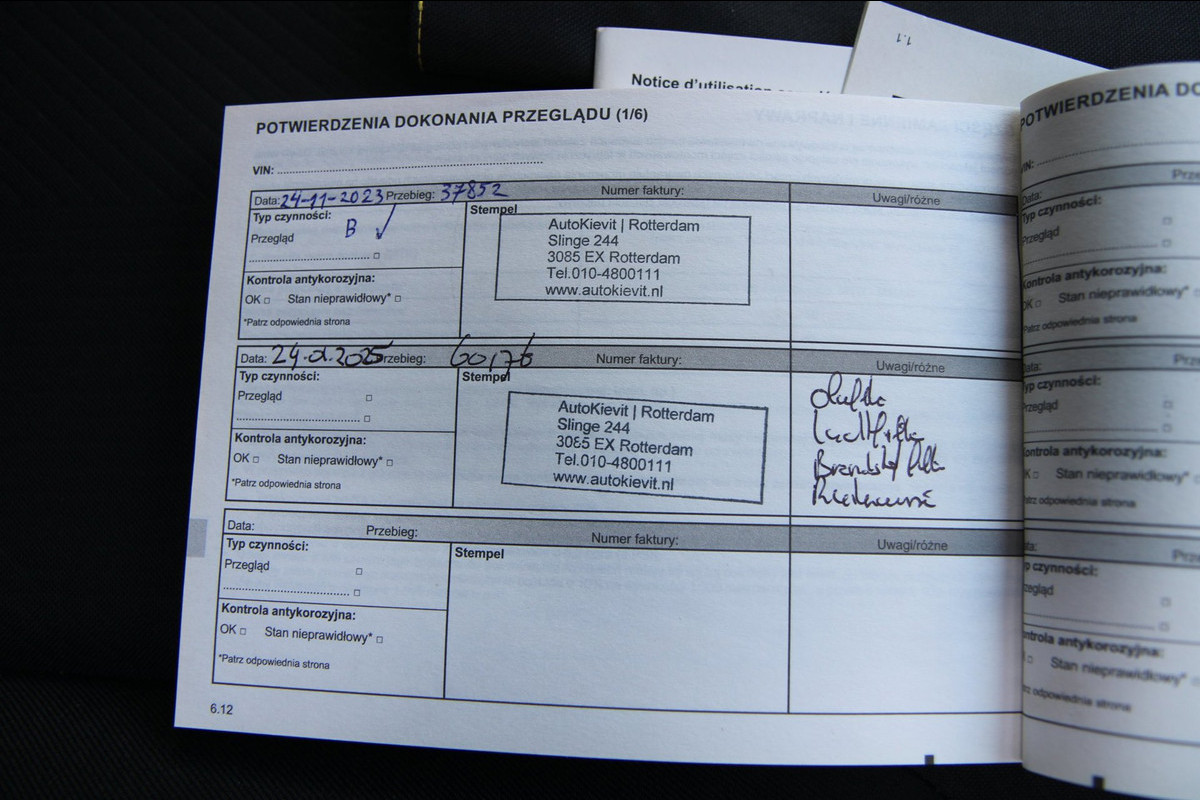 1.1
Notice d'utilisation
POTWIERDZENIA DOKONANIA PRZEGLĄDU (1/6)
VIN:
Data: 24-11-2023 Przebieg: 37852 Numer faktury: Uwagi/różne
Typ czynności: Stempel
Przegląd B ✓
AutoKievit | Rotterdam
Slinge 244
3085 EX Rotterdam
Tel.010-4800111
www.autokievit.nl
Kontrola antykorozyjna:
OK □ Stan nieprawidłowy* □
*Patrz odpowiednia strona
Data: Przebieg: Numer faktury: Uwagi/różne
Typ czynności: Stempel
Przegląd □
AutoKievit | Rotterdam
Slinge 244
3085 EX Rotterdam
Tel.010-4800111
www.autokievit.nl
Kontrola antykorozyjna:
OK □ Stan nieprawidłowy* □
*Patrz odpowiednia strona
Data: Przebieg: Numer faktury: Uwagi/różne
Typ czynności: Stempel
Przegląd □
Kontrola antykorozyjna:
OK □ Stan nieprawidłowy* □
*Patrz odpowiednia strona
6.12
POTWIERDZENIA DO
VIN:
Data: Prze
Typ czynności:
Przegląd □
Kontrola antykorozyjna:
OK □ Stan nieprawidłowy*
*Patrz odpowiednia strona
Data: Prze
Typ czynności:
Przegląd □
Kontrola antykorozyjna:
OK □ Stan nieprawidłowy*
*Patrz odpowiednia strona
Prze
Typ czynności:
Przegląd □
Kontrola antykorozyjna:
Stan nieprawidłowy*
*Patrz odpowiednia strona